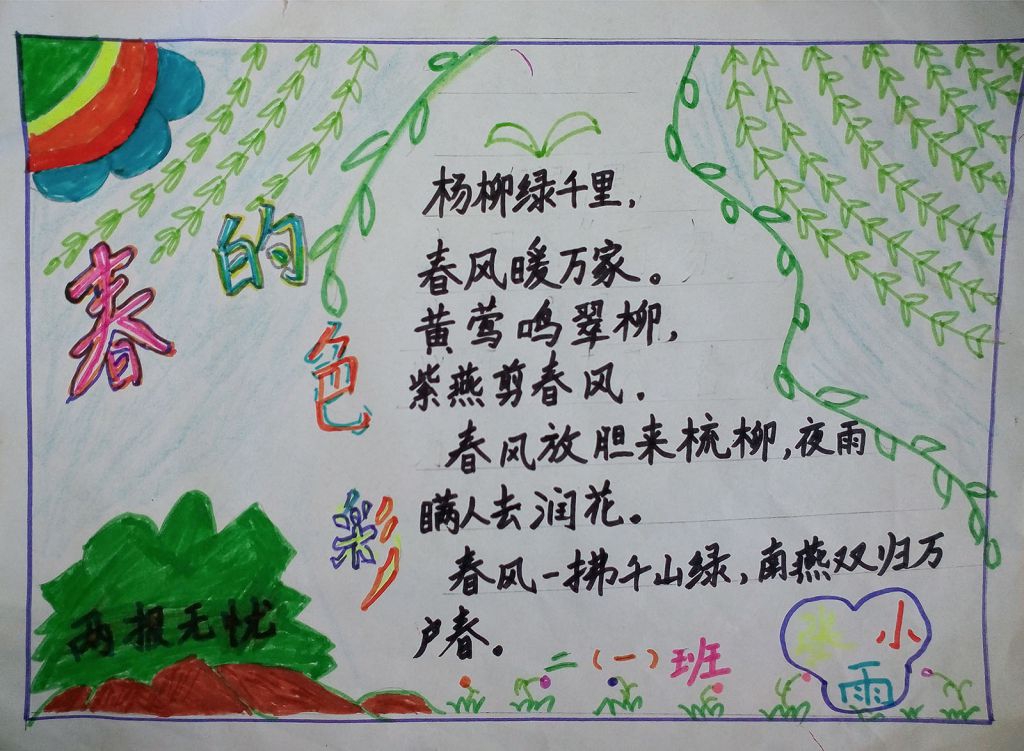 春的色彩
杨柳绿千里,
春风暖万家。
黄莺鸣翠柳,
紫燕剪春风.
春风放胆来梳柳,夜雨
瞒人去润花。
春风一拂千山绿,南燕双归万
户春。
两报无忧
二(一)班
张小
雨